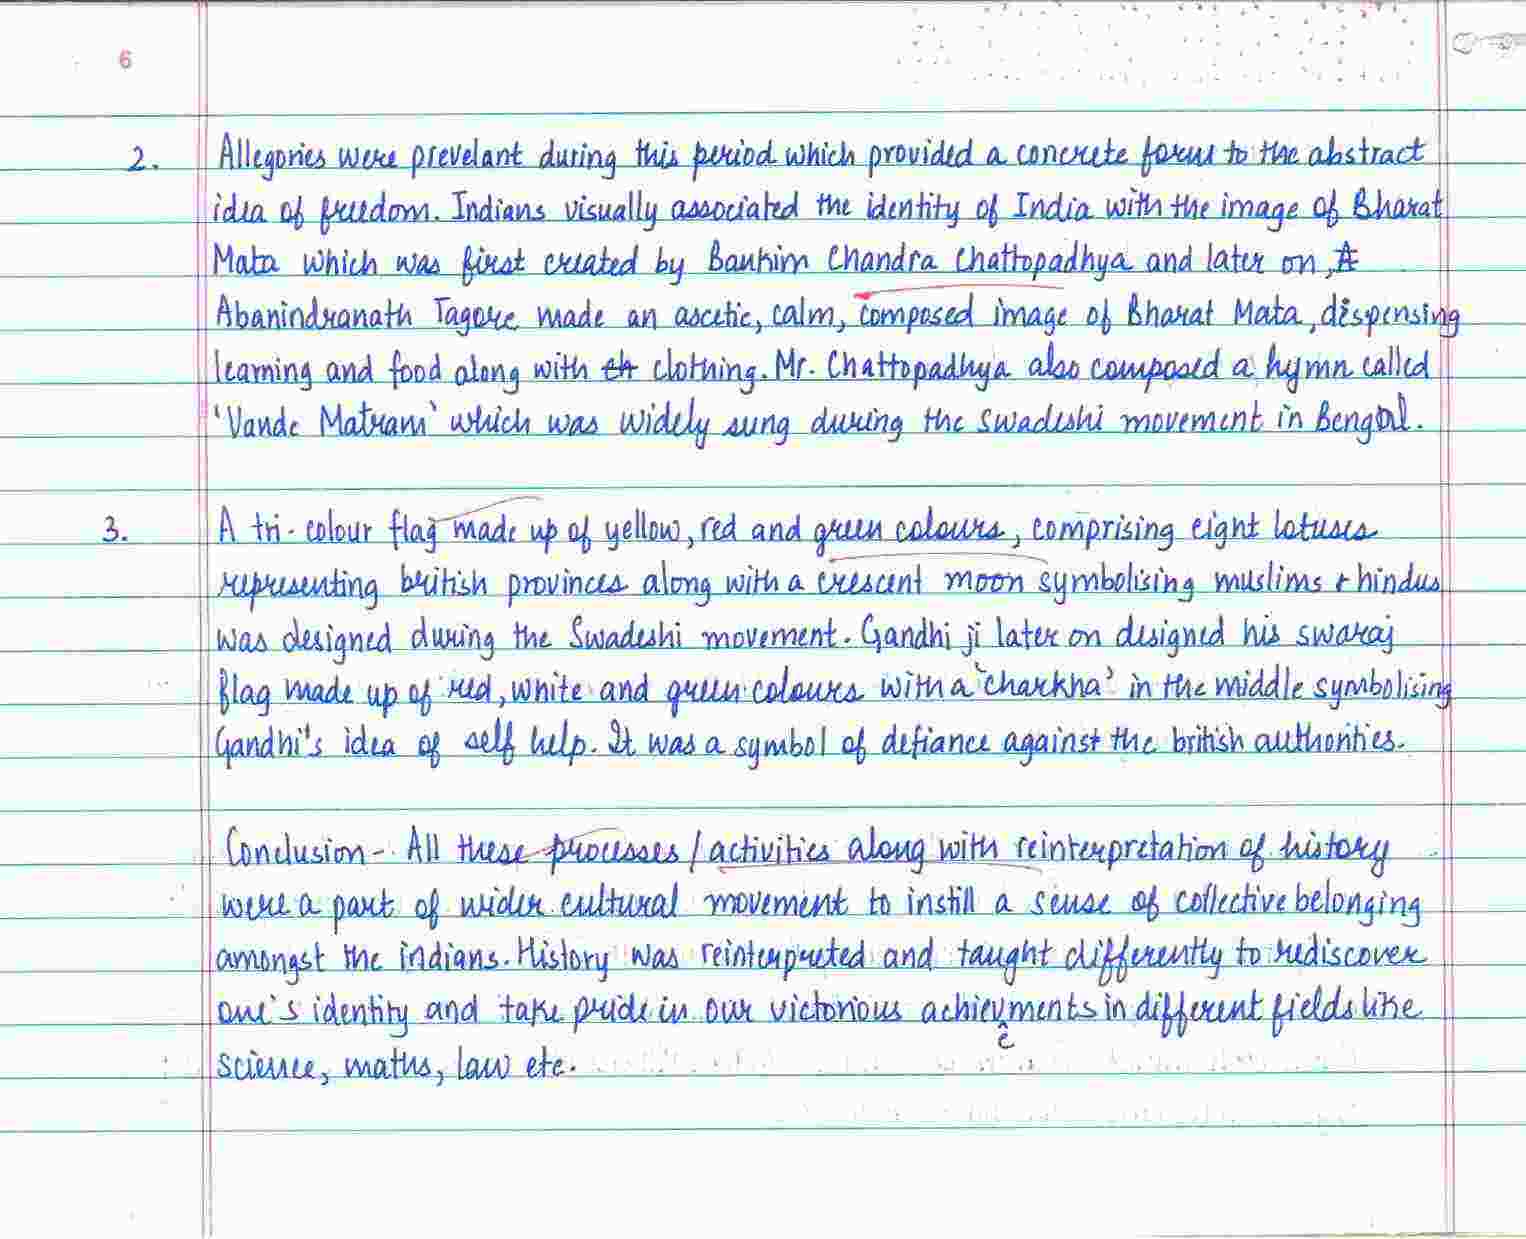 6
2. Allegories were prevelant during this period which provided a concrete form to the abstract
idea of freedom. Indians visually associated the identity of India with the image of Bharat
Mata which was first created by Bankim Chandra Chattopadhya and later on,
Abanindranath Tagore made an ascetic, calm, composed image of Bharat Mata, dispensing
learning and food along with clothing. Mr. Chattopadhya also composed a hymn called
'Vande Matram' which was widely sung during the swadeshi movement in Bengal.
3. A tri-colour flag made up of yellow, red and green colours, comprising eight lotuses
representing british provinces along with a crescent moon symbolising muslims & hindus
was designed during the Swadeshi movement. Gandhi ji later on designed his swaraj
flag made up of red, white and green colours with a 'charkha' in the middle symbolising
Gandhi's idea of self help. It was a symbol of defiance against the british authorities.
Conclusion - All these processes / activities along with reinterpretation of history
were a part of wider cultural movement to instill a sense of collective belonging
amongst the indians. History was reinterpreted and taught differently to rediscover
one's identity and take pride in our victorious achievements in different fields like
science, maths, law etc.